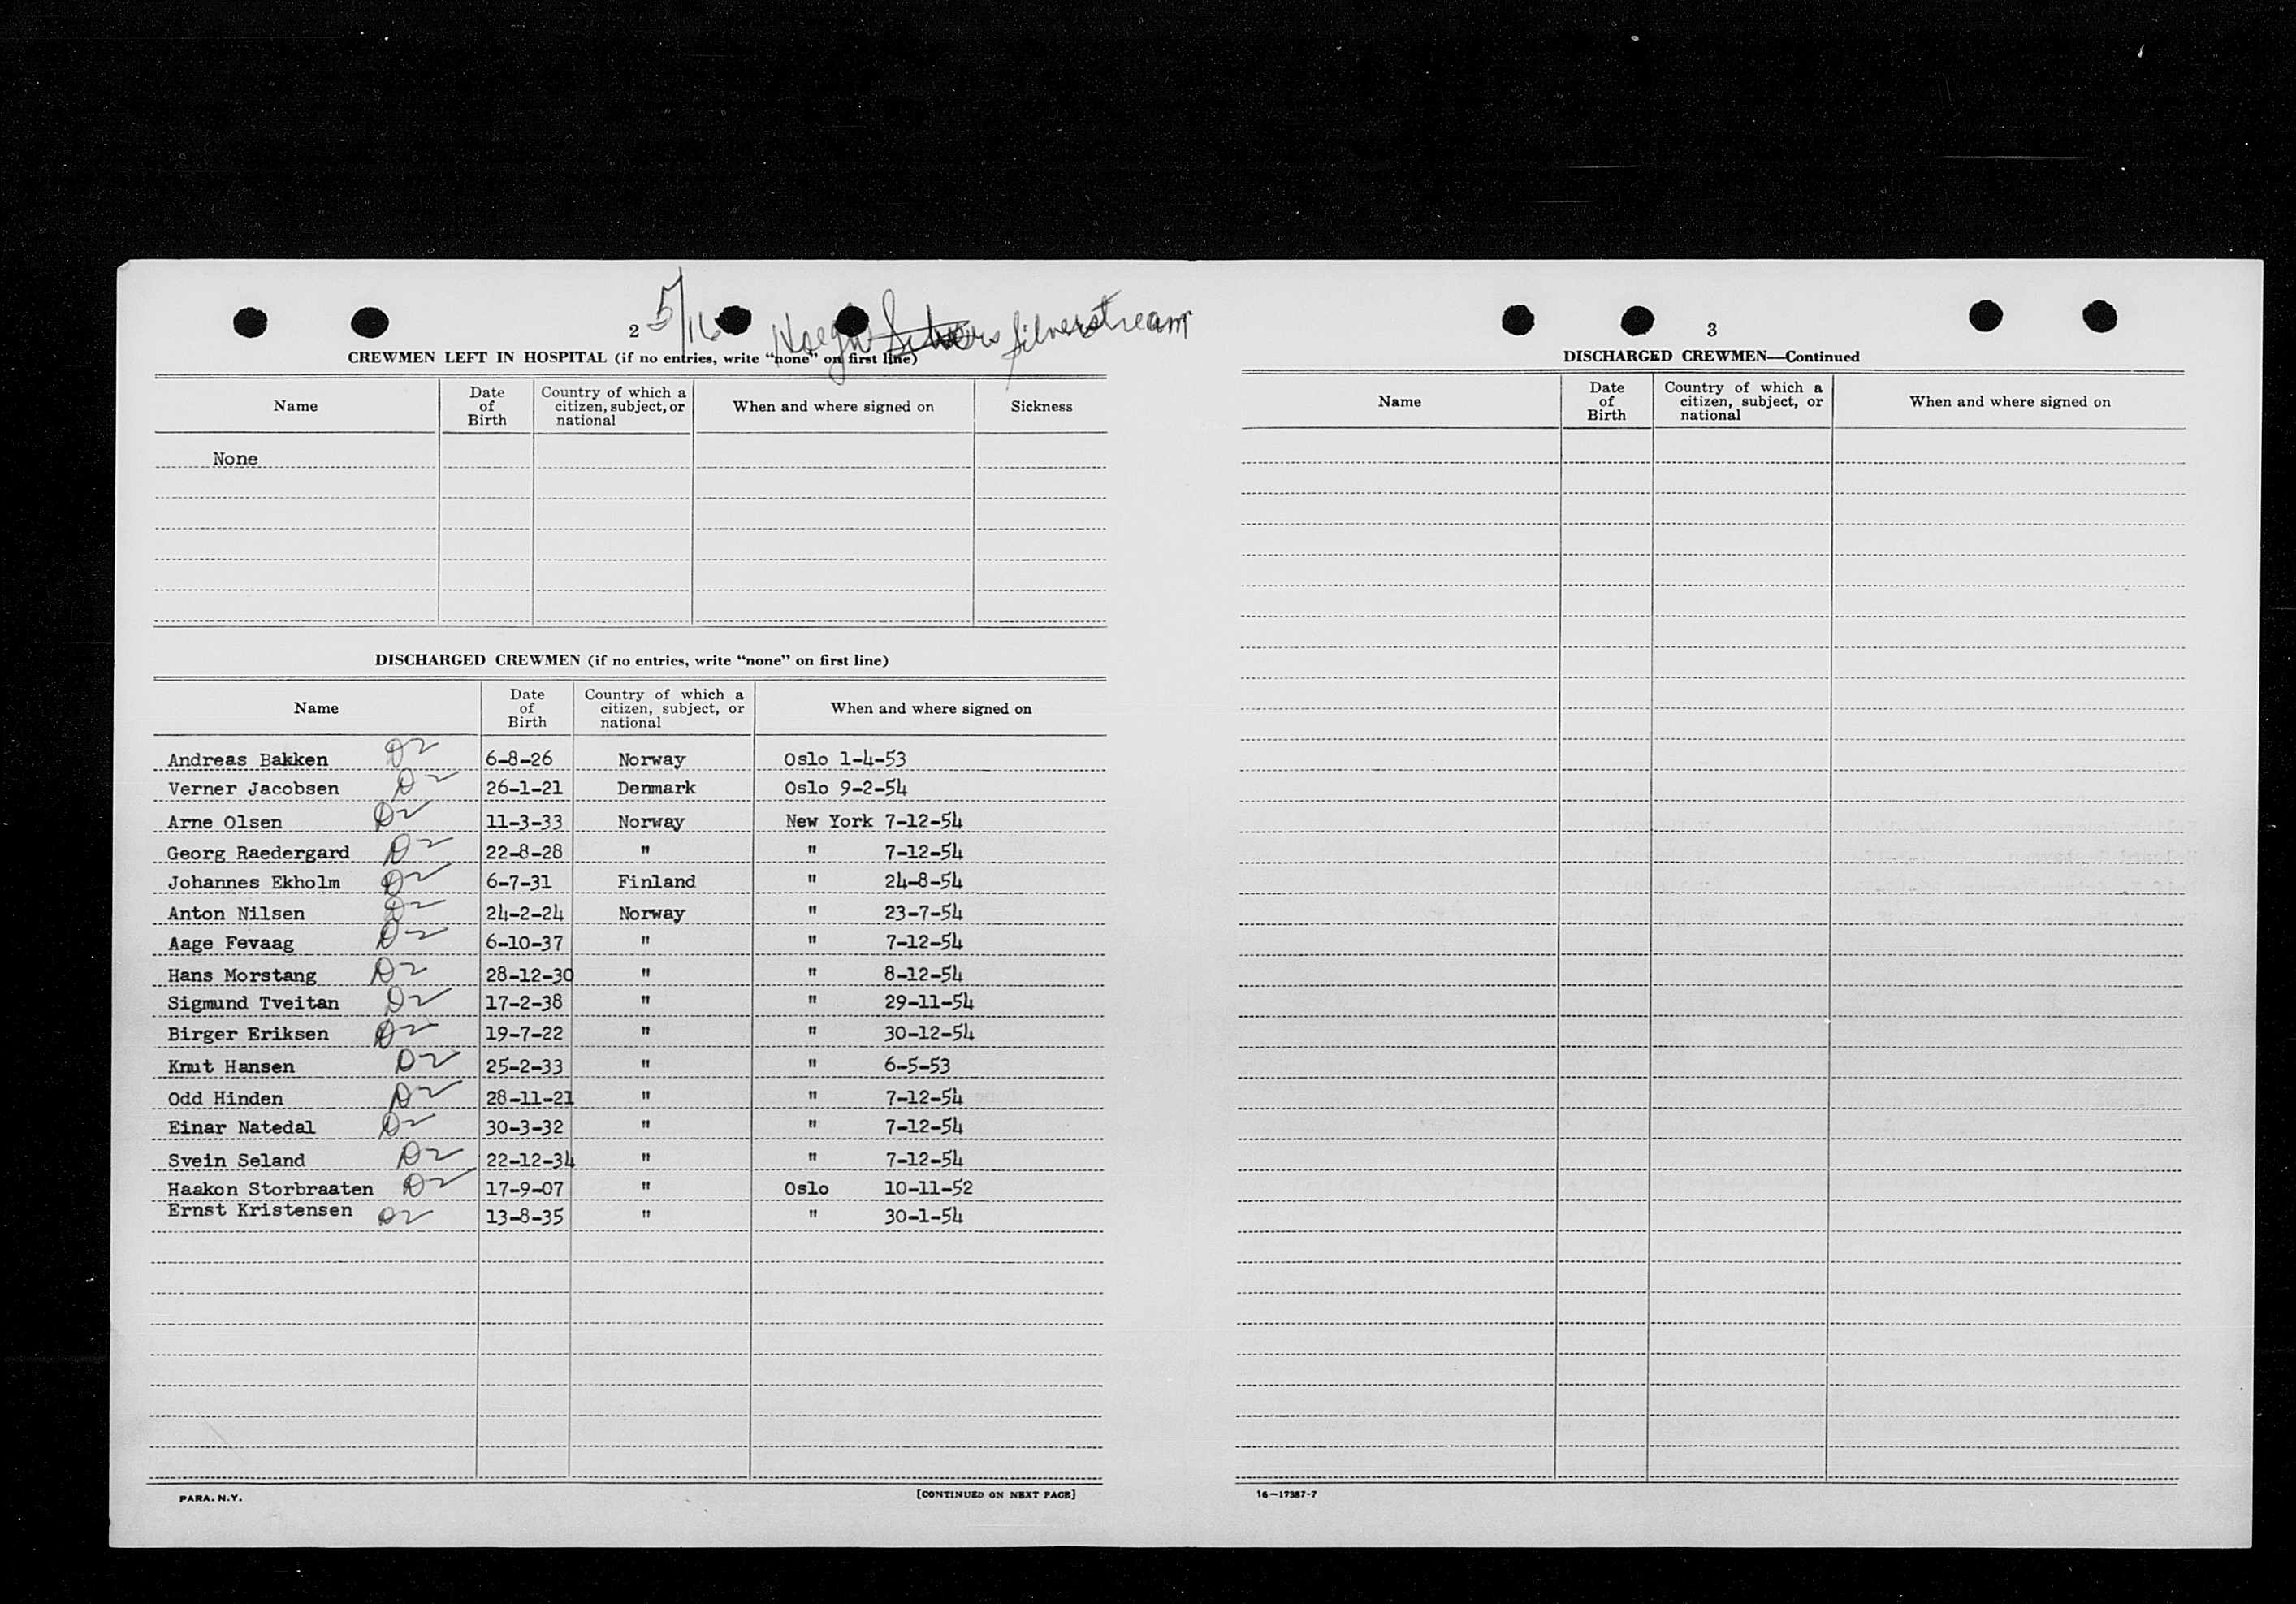 2 5/16 Hoegh Silverstream
CREWMEN LEFT IN HOSPITAL (if no entries, write “none” on first line)
Name Date of Birth Country of which a citizen, subject, or national When and where signed on Sickness
None
DISCHARGED CREWMEN (if no entries, write “none” on first line)
Name Date of Birth Country of which a citizen, subject, or national When and where signed on
Andreas Bakken D2 6-8-26 Norway Oslo 1-4-53
Verner Jacobsen D2 26-1-21 Denmark Oslo 9-2-54
Arne Olsen D2 11-3-33 Norway New York 7-12-54
Georg Raedergard D2 22-8-28 " " 7-12-54
Johannes Ekholm D2 6-7-31 Finland " 24-8-54
Anton Nilsen D2 24-2-24 Norway " 23-7-54
Aage Fevaag D2 6-10-37 " " 7-12-54
Hans Morstang D2 28-12-30 " " 8-12-54
Sigmund Tveitan D2 17-2-38 " " 29-11-54
Birger Eriksen D2 19-7-22 " " 30-12-54
Knut Hansen D2 25-2-33 " " 6-5-53
Odd Hinden D2 28-11-21 " " 7-12-54
Einar Natedal D2 30-3-32 " " 7-12-54
Svein Seland D2 22-12-34 " " 7-12-54
Haakon Storbraaten D2 17-9-07 " Oslo 10-11-52
Ernst Kristensen D2 13-8-35 " " 30-1-54
PARA. N.Y. [CONTINUED ON NEXT PAGE]
3
DISCHARGED CREWMEN—Continued
Name Date of Birth Country of which a citizen, subject, or national When and where signed on
16—17387-7